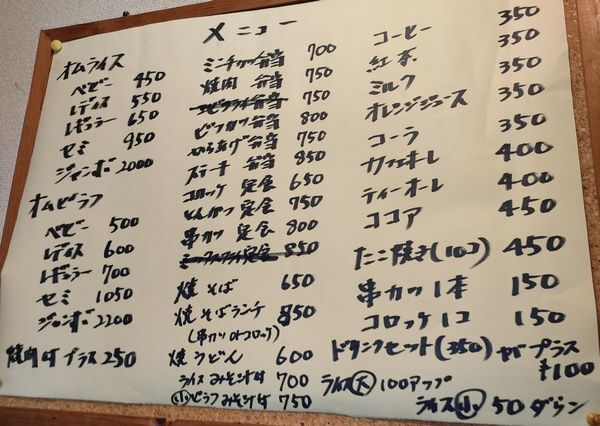 メニュー
オムライス
ベビー 450
レディス 550
レギュラー 650
セミ 950
ジャンボ 2000
オムピラフ
ベビー 500
レディス 600
レギュラー 700
セミ 1050
ジャンボ 2200
焼肉付プラス250
ミニチカツ弁当 700
焼肉 弁当 750
エビフライ弁当 750
ビフカツ弁当 800
からあげ弁当 750
ステーキ 弁当 850
コロッケ 定食 650
とんかつ 定食 750
串カツ 定食 800
ミックスフライ定食 850
焼そば 650
焼そばランチ 850
(串カツorコロッケ)
焼うどん 600
ライス みそ汁付 700
小ピラフ みそ汁付 750
コーヒー 350
紅茶 350
ミルク 350
オレンジジュース 350
コーラ 350
カフェオーレ 400
ティーオーレ 400
ココア 450
たこ焼き(10コ) 450
串カツ1本 150
コロッケ1コ 150
ドリンクセット(350)がプラス
¥100
ライス大 100アップ
ライス小 50ダウン